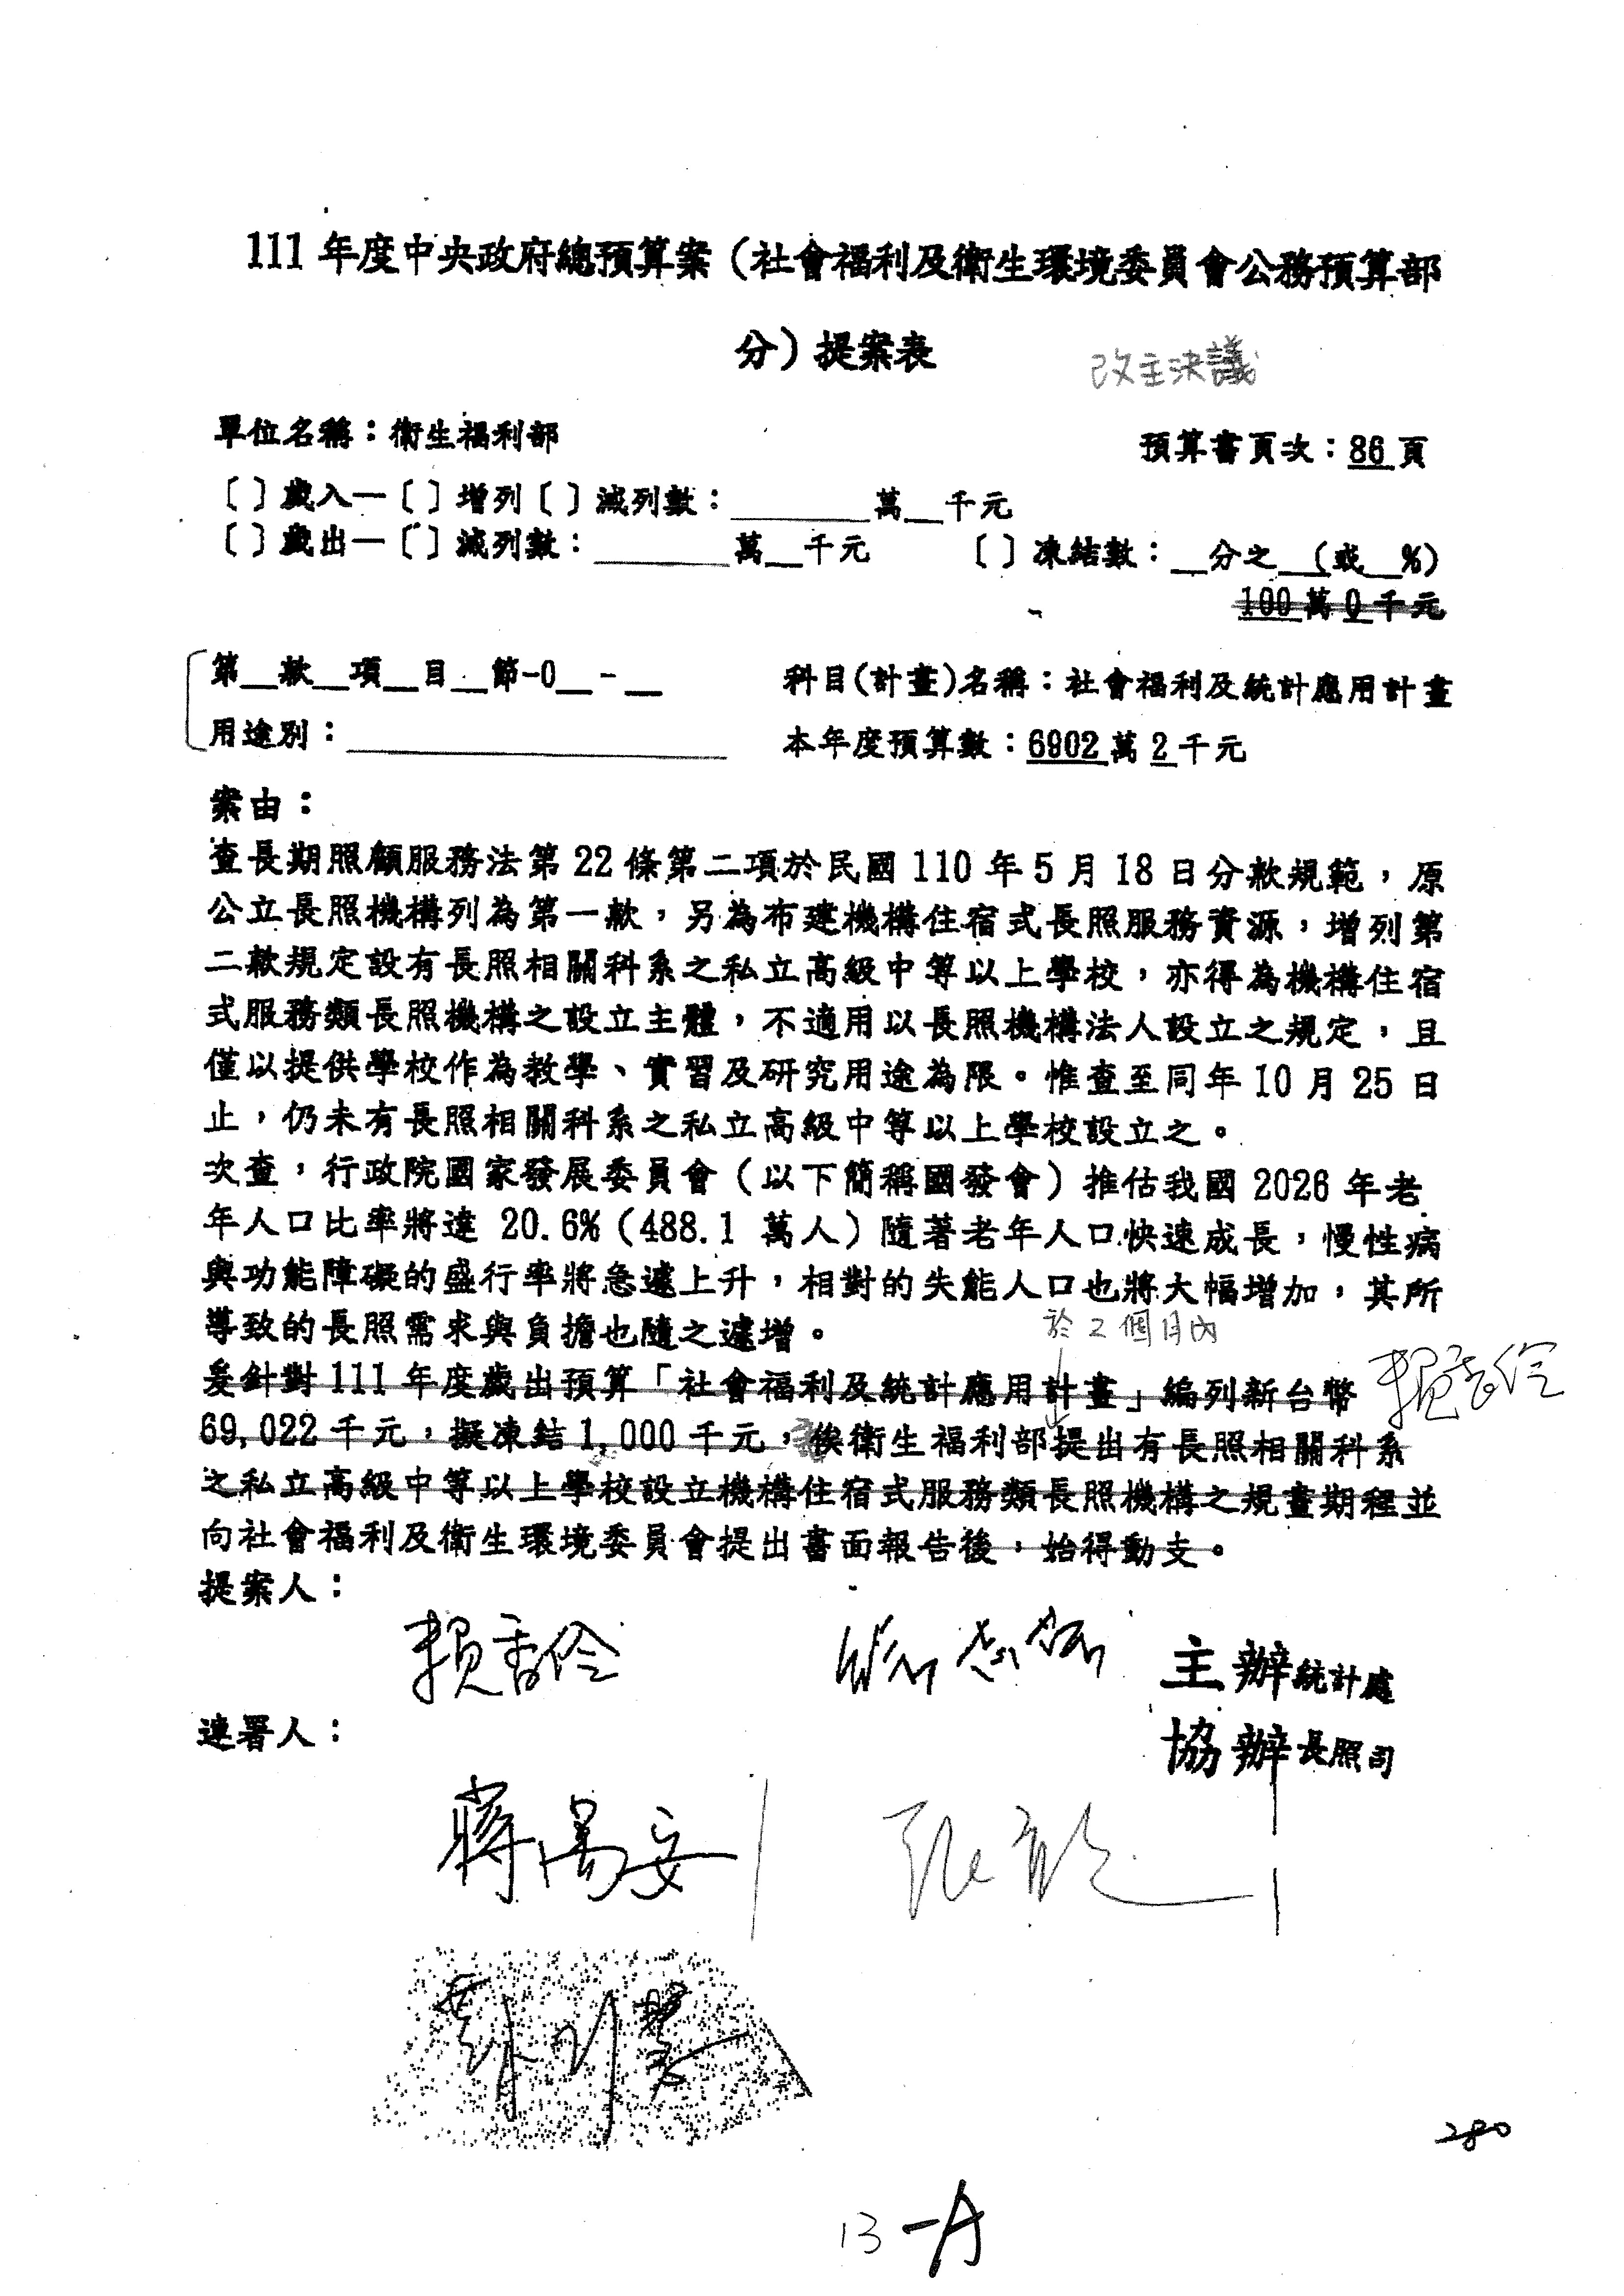 111 年度中央政府總預算案（社會福利及衛生環境委員會公務預算部
分）提案表
改主決議
單位名稱：衛生福利部
預算書頁次：86 頁
〔 〕歲入—〔 〕增列〔 〕減列數：________萬__千元
〔 〕歲出—〔 〕減列數：________萬__千元 〔 〕凍結數：__分之__(或__%)
100 萬 0 千元
第__款__項__目__節-0__-__ 科目(計畫)名稱：社會福利及統計應用計畫
用途別：________ 本年度預算數：6902 萬 2 千元
案由：
查長期照顧服務法第 22 條第二項於民國 110 年 5 月 18 日分款規範，原
公立長照機構列為第一款，另為布建機構住宿式長照服務資源，增列第
二款規定設有長照相關科系之私立高級中等以上學校，亦得為機構住宿
式服務類長照機構之設立主體，不適用以長照機構法人設立之規定，且
僅以提供學校作為教學、實習及研究用途為限。惟查至同年 10 月 25 日
止，仍未有長照相關科系之私立高級中等以上學校設立之。
次查，行政院國家發展委員會（以下簡稱國發會）推估我國 2026 年老
年人口比率將達 20.6%（488.1 萬人）隨著老年人口快速成長，慢性病
與功能障礙的盛行率將急遽上升，相對的失能人口也將大幅增加，其所
導致的長照需求與負擔也隨之遽增。
於 2 個月內
爰針對 111 年度歲出預算「社會福利及統計應用計畫」編列新台幣
賴香伶
69,022 千元，擬凍結 1,000 千元，俟衛生福利部提出有長照相關科系
之私立高級中等以上學校設立機構住宿式服務類長照機構之規畫期程並
向社會福利及衛生環境委員會提出書面報告後，始得動支。
提案人：
賴香伶
主辦統計處
連署人：
協辦長照司
蔣萬安
280
13-A